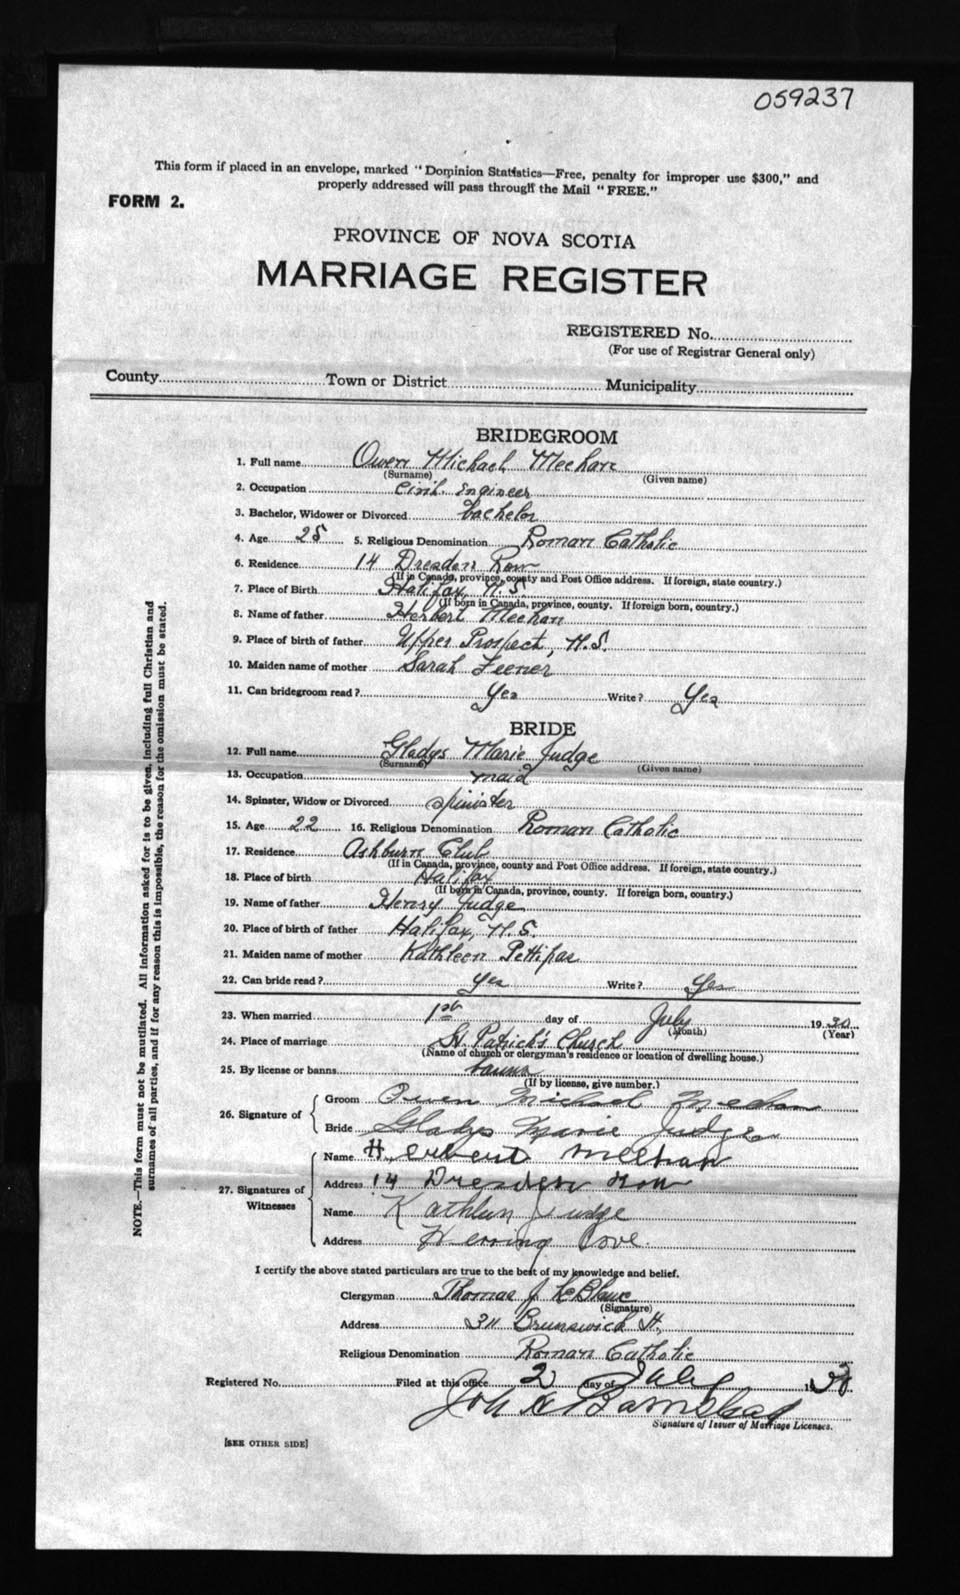 059237
This form if placed in an envelope, marked "Dominion Statistics—Free, penalty for improper use $300," and
properly addressed will pass through the Mail "FREE."
FORM 2.
PROVINCE OF NOVA SCOTIA
MARRIAGE REGISTER
REGISTERED No.
(For use of Registrar General only)
County Town or District Municipality
BRIDEGROOM
1. Full name Owen Michael Meehan
(Surname) (Given name)
2. Occupation Civil Engineer
3. Bachelor, Widower or Divorced bachelor
4. Age 25 5. Religious Denomination Roman Catholic
6. Residence 14 Dresden Row
(If in Canada, province, county and Post Office address. If foreign, state country.)
7. Place of Birth Halifax, N.S.
(If born in Canada, province, county. If foreign born, country.)
8. Name of father Herbert Meehan
9. Place of birth of father Upper Prospect, N.S.
10. Maiden name of mother Sarah Feener
11. Can bridegroom read? Yes Write? Yes
BRIDE
12. Full name Gladys Marie Judge
(Surname) (Given name)
13. Occupation maid
14. Spinster, Widow or Divorced spinister
15. Age 22 16. Religious Denomination Roman Catholic
17. Residence Ashburn Club
(If in Canada, province, county and Post Office address. If foreign, state country.)
18. Place of birth Halifax
(If born in Canada, province, county. If foreign born, country.)
19. Name of father Henry Judge
20. Place of birth of father Halifax, N.S.
21. Maiden name of mother Kathleen Pettipas
22. Can bride read? Yes Write? Yes
23. When married 1st day of July 1930
(Month) (Year)
24. Place of marriage St. Patrick's Church
(Name of church or clergyman's residence or location of dwelling house.)
25. By license or banns banns
(If by license, give number.)
26. Signature of
Groom Owen Michael Meehan
Bride Gladys Marie Judge
27. Signatures of Witnesses
Name Herbert Meehan
Address 14 Dresden Row
Name Kathleen Judge
Address Herring Cove.
I certify the above stated particulars are true to the best of my knowledge and belief.
Clergyman Thomas J. LeBlanc
(Signature)
Address 311 Brunswick St.
Religious Denomination Roman Catholic
Registered No. Filed at this office 2 day of July 1930
Signature of Issuer of Marriage Licenses.
[SEE OTHER SIDE]
NOTE.—This form must not be mutilated. All information asked for is to be given, including full Christian and
surnames of all parties, and if for any reason this is impossible, the reason for the omission must be stated.